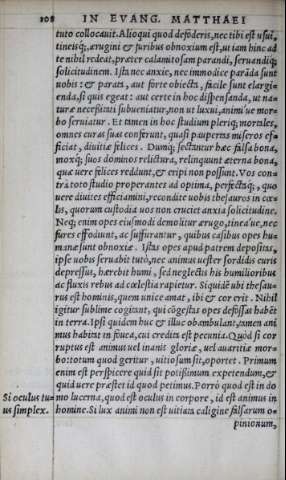 108 IN EVANG. MATTHAEI
tuto collocauit. Alioqui quod defoderis, nec tibi est usui,
tineisq́;, ærugini & furibus obnoxium est, ut iam hinc ad
te nihil redeat, præter calamitosam parandi, seruandiq́;
solicitudinem. Ista nec anxie, nec immodice parāda sunt
uobis: & parata, aut forte obiecta, facile sunt elargi=
enda, si quis egeat: aut certe in hoc dispensanda, ut na=
turæ necessitati subueniatur, non ut luxui, animi'ue mor
bo seruiatur. Et tamen in hoc studium pleriq́; mortales,
omnes curas suas conferunt, quasi paupertas miseros ef=
ficiat, diuitiæ felices. Dumq́; sectantur hæc falsa bona,
moxq́; suos dominos relictura, relinquunt æterna bona,
quæ uere felices reddunt, & eripi non possunt. Vos con=
trà toto studio properantes ad optima, perfectaq́;, quo
uere diuites efficiamini, recondite uobis thesauros in cœ=
lis, quorum custodia uos non cruciet anxia solicitudine.
Neq; enim opes eiusmodi demolitur ærugo, tinea'ue, nec
fures effodiunt, ac suffurantur, quibus casibus opes hu=
manæ sunt obnoxiæ. Istas opes apud patrem depositas,
ipse uobis seruabit tutò, nec animus uester sordidis curis
depressus, hærebit humi, sed neglectis his humilioribus
ac fluxis rebus ad cœlestia rapietur. Siquidē ubi thesau=
rus est hominis, quem unice amat, ibi & cor erit. Nihil
igitur sublime cogitant, qui cōgestas opes defossas habēt
in terra. Ipsi quidem huc & illuc obambulant, tamen ani
mus habitat in fouea, cui credita est pecunia. Quòd si cor
ruptus est animus uel inanis gloriæ, uel auaritiæ mor=
bo: totum quod geritur, uitiosum sit, oportet. Primum
enim est perspicere quid sit potissimum expetendum, &
quid uere præstet id quod petimus. Porrò quod est in do
Si oculus tu= mo lucerna, quod est oculus in corpore, id est animus in
us simplex. homine. Si lux animi non est uitiata caligine falsarum o=
pinionum,